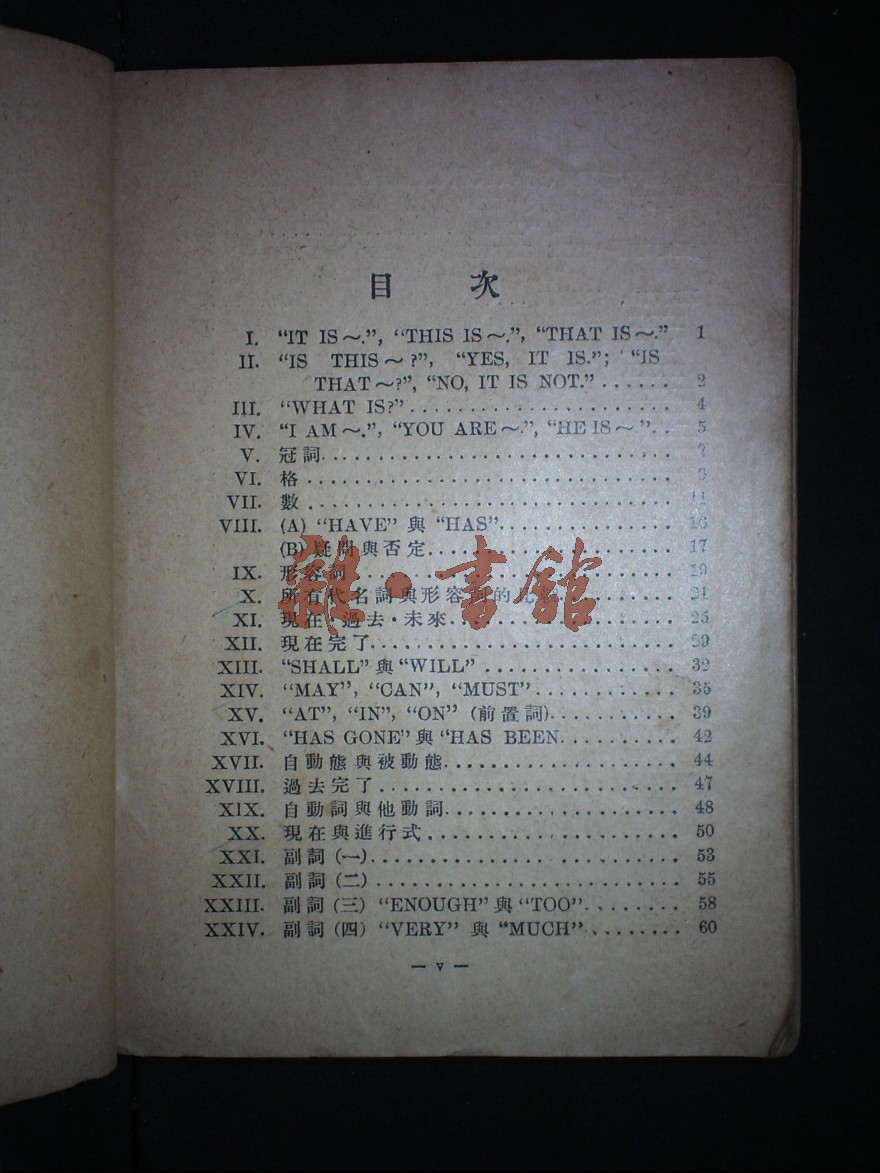 目 次
I. “IT IS～.”, “THIS IS～.”, “THAT IS～.” 1
II. “IS THIS～?”, “YES, IT IS.”; “IS
THAT～?”, “NO, IT IS NOT.” ...... 2
III. “WHAT IS?” ...... 4
IV. “I AM～.”, “YOU ARE～.”, “HE IS～”.. 5
V. 冠詞 ...... 7
VI. 格 ......
VII. 數 ...... 11
VIII. (A) “HAVE” 與 “HAS” ...... 16
(B) 疑問與否定 ...... 17
IX. 形容詞 ...... 19
X. 所有代名詞與形容詞的 ...... 21
XI. 現在·過去·未來 ...... 25
XII. 現在完了 ...... 29
XIII. “SHALL” 與 “WILL” ...... 32
XIV. “MAY”, “CAN”, “MUST” ...... 35
XV. “AT”, “IN”, “ON” (前置詞) ...... 39
XVI. “HAS GONE” 與 “HAS BEEN ...... 42
XVII. 自動態與被動態 ...... 44
XVIII. 過去完了 ...... 47
XIX. 自動詞與他動詞 ...... 48
XX. 現在與進行式 ...... 50
XXI. 副詞 (一) ...... 53
XXII. 副詞 (二) ...... 55
XXIII. 副詞 (三) “ENOUGH” 與 “TOO” ...... 58
XXIV. 副詞 (四) “VERY” 與 “MUCH” ...... 60
— v —
雜·書館